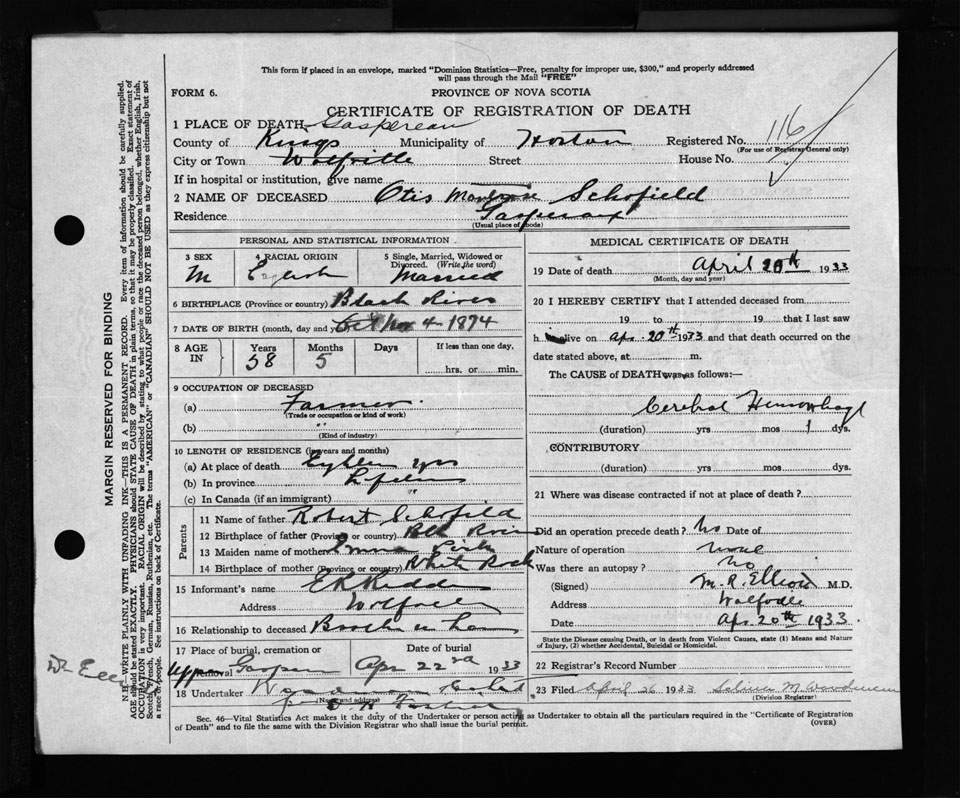 This form if placed in an envelope, marked "Dominion Statistics—Free, penalty for improper use, $300," and properly addressed
will pass through the Mail "FREE"
FORM 6.
PROVINCE OF NOVA SCOTIA
CERTIFICATE OF REGISTRATION OF DEATH
1 PLACE OF DEATH Gaspereau
County of Kings Municipality of Horton Registered No. 116
(For use of Registrar General only)
City or Town Wolfville Street House No.
If in hospital or institution, give name
2 NAME OF DECEASED Otis Schofield
Residence
(Usual place of abode)
PERSONAL AND STATISTICAL INFORMATION
3 SEX
M
4 RACIAL ORIGIN
English
5 Single, Married, Widowed or
Divorced. (Write the word)
Married
6 BIRTHPLACE (Province or country) Black River
7 DATE OF BIRTH (month, day and 4 1874
8 AGE
IN
Years
58
Months
5
Days
If less than one day,
hrs. or min.
9 OCCUPATION OF DECEASED
(a) Farmer
(Trade or occupation or kind of work)
(b) "
(Kind of industry)
10 LENGTH OF RESIDENCE (in years and months)
(a) At place of death yrs
(b) In province
(c) In Canada (if an immigrant) "
Parents
11 Name of father Robert Schofield
12 Birthplace of father (Province or country) River
13 Maiden name of mother Emma
14 Birthplace of mother (Province or country) White Rock
15 Informant's name
Address Wolfville
16 Relationship to deceased Brother in Law
17 Place of burial, cremation or
removal Upper
Date of burial
Apr 22nd 1933
18 Undertaker Woodman
(Name and address)
MEDICAL CERTIFICATE OF DEATH
19 Date of death April 20th 1933
(Month, day and year)
20 I HEREBY CERTIFY that I attended deceased from
19 to 19 that I last saw
h alive on Apr. 20th 1933 and that death occurred on the
date stated above, at m.
The CAUSE of DEATH was as follows:—
Cerebral Hemorrhage
(duration) yrs mos 1 dys.
CONTRIBUTORY
(duration) yrs mos dys.
21 Where was disease contracted if not at place of death?
Did an operation precede death? No Date of
Nature of operation none
Was there an autopsy? No
(Signed) M. R. Elliott M.D.
Address Wolfville
Date Apr 20th 1933
State the Disease causing Death, or in death from Violent Causes, state (1) Means and Nature
of Injury, (2) whether Accidental, Suicidal or Homicidal.
22 Registrar's Record Number
23 Filed April 26 1933
(Division Registrar)
Sec. 46—Vital Statistics Act makes it the duty of the Undertaker or person acting as Undertaker to obtain all the particulars required in the "Certificate of Registration
of Death" and to file the same with the Division Registrar who shall issue the burial permit.
(OVER)
MARGIN RESERVED FOR BINDING
N.B.—WRITE PLAINLY WITH UNFADING INK—THIS IS A PERMANENT RECORD. Every item of information should be carefully supplied.
AGE should be stated EXACTLY. PHYSICIANS should STATE CAUSE OF DEATH in plain terms, so that it may be properly classified. Exact statement of
OCCUPATION is very important. RACIAL ORIGIN will be described by stating to what people or race the deceased person belonged, whether English, Irish,
Scotch, French, German, Russian, Ruthenian, etc. The terms "AMERICAN" or "CANADIAN" SHOULD NOT BE USED as they express citizenship but not
a race or people. See instructions on back of Certificate.